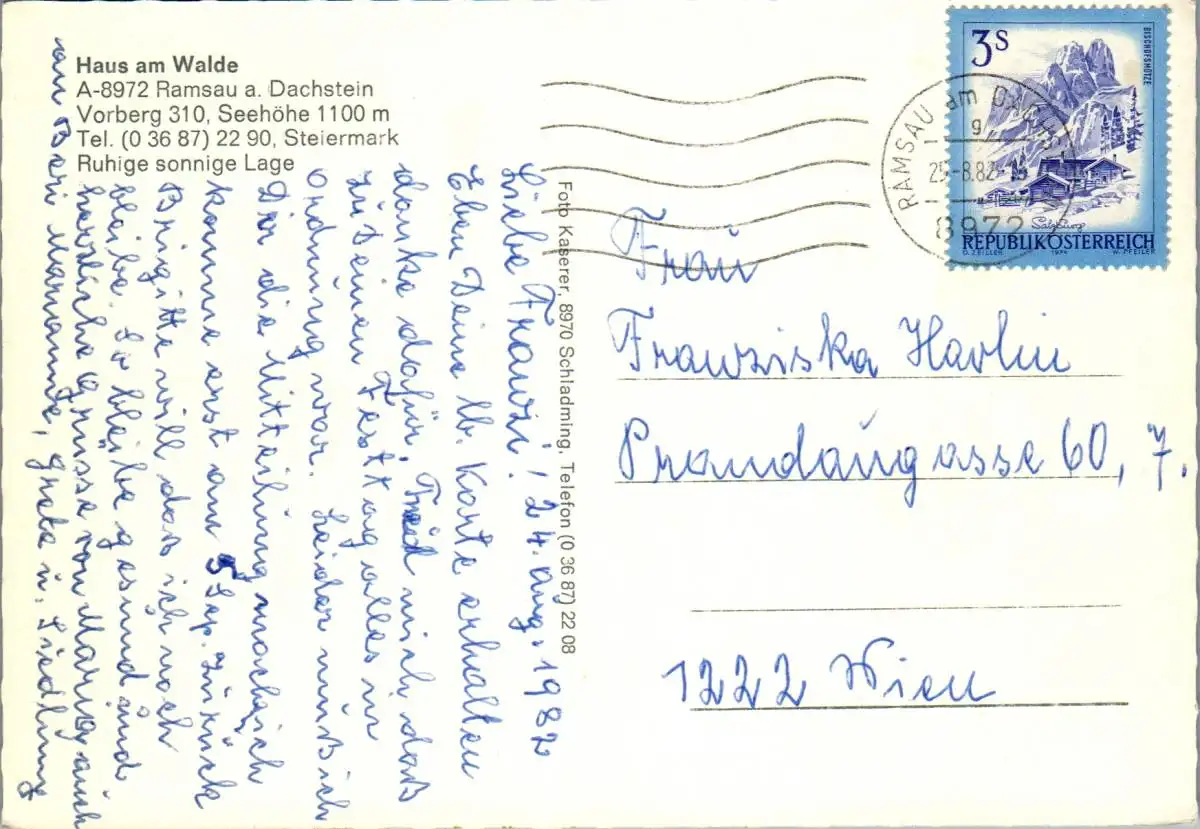 Haus am Walde
A-8972 Ramsau a. Dachstein
Vorberg 310, Seehöhe 1100 m
Tel. (0 36 87) 22 90, Steiermark
Ruhige sonnige Lage
Liebe Franzi! 24. Aug. 1982
Eben Deine lb. Karte erhalten
danke dafür, Freud mich daß
zu Deinen Festtag alles in
Ordnung war. Leider muß ich
Dir die Mitteilung machen ich
komme erst am 5 Sep. Zurück
Brigitte will das ich noch
bleibe. So bleibe gesund und
herzliche grüsse von Mamag auch
an Beri Marianne, Greta u. Siedlung
Foto Kaserer, 8970 Schladming, Telefon (0 36 87) 22 08
3S
BISCHOFSMÜTZE
Salzburg
REPUBLIK ÖSTERREICH
O. ZEILLER 1974 W. PFEILER
RAMSAU am DACHST
g
25.-8.82-14
8972
Frau
Franziska Havlin
Prandaugasse 60, 7.
1222 Wien